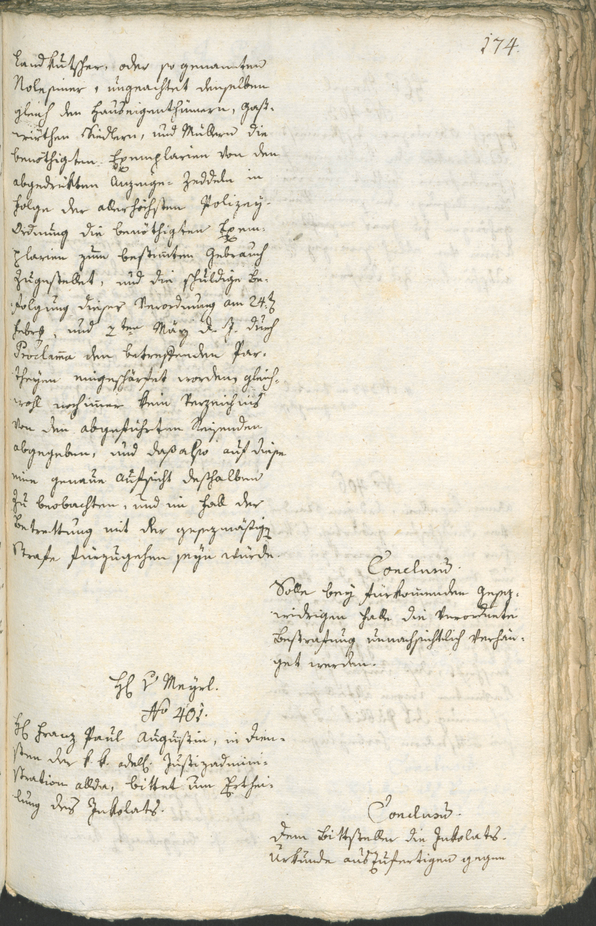 174.
Landkutscher, oder so genannten
Nolesiner, ungeachtet denselben
gleich den Hauseigenthümern, Gast-
wirthen Siedlern, und Müllern die
benöthigten Exemplarien von den
abgedrukten Anzeige-Zeddeln in
Folge der allerhöchsten Polizey-
Ordnung die benöthigten Exem-
plarien zum bestimten Gebrauch
zugestellet, und die schuldige Be-
folgung dieser Verordnung am 24.
Febr, und 2ten März d. J. durch
Proclama den betreffenden Par-
theyen eingeschärfet worden, gleich-
wohl noch immer kein Verzeichnis
von den abgeführten Reisenden
abgegeben, und daß also auf diese
eine genaue Aufsicht desthalben
zu beobachten, und in Fall der
Betrettung mit der gesezmäsigen
Strafe fürzugehen seyn würde
Conclusum.
Solle bey fürkommenden gesez-
widrigen Falle die verordnete
Bestrafung unnachsichtlich verhän-
get werden.
H. v Meyrl.
No 401.
H. Franz Paul Augustin, in Dien-
sten der k. k. adel. Justizadmini-
stration allda, bittet um Erthei-
lung des Inkolats.
Conclusum.
Dem Bittsteller die Inkolats-
Urkunde auszufertigen gegen